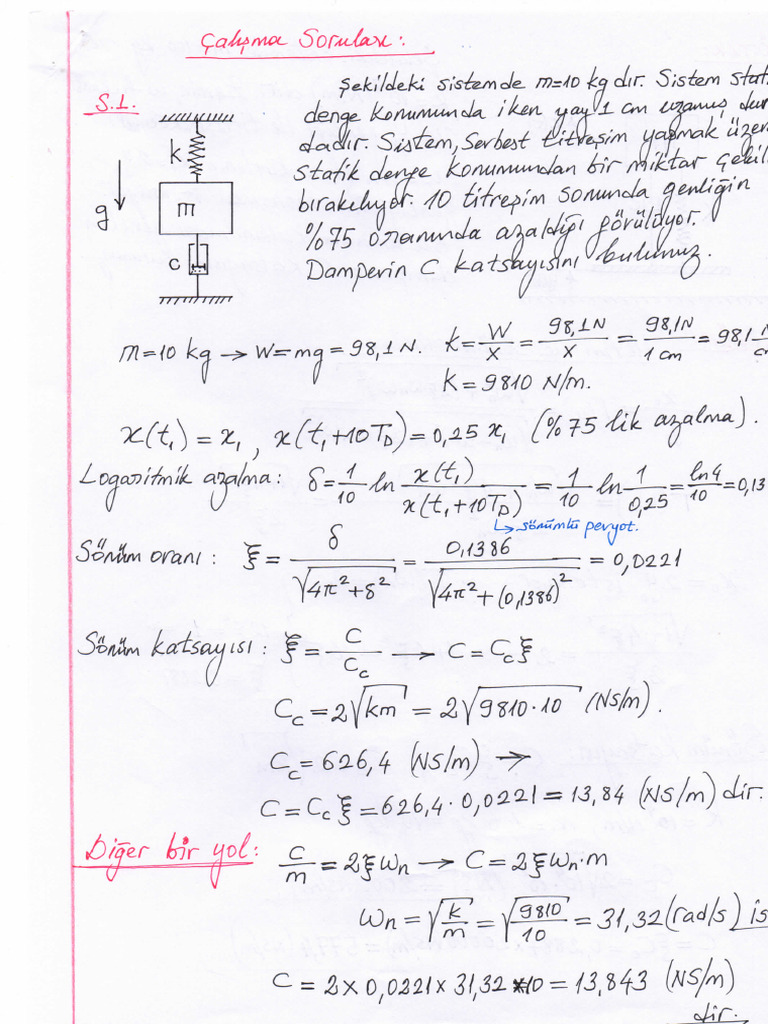 Çalışma Soruları:
S.1.
Şekildeki sistemde m=10 kg dır. Sistem stat
denge konumunda iken yay 1 cm uzamış dur
dadır. Sistem, Serbest titreşim yapmak üzer
statik denge konumundan bir miktar çekil
bırakılıyor. 10 titreşim sonunda genliğin
%75 oranında azaldığı görülüyor.
Damperin C katsayısını bulunuz.
k
m
g
c
m=10 kg → W=mg=98,1 N. k=W/x=98,1N/x=98,1N/1 cm=98,1 N/cm
k=9810 N/m.
x(t₁)=x₁, x(t₁+10T_D)=0,25 x₁ (%75 lik azalma).
Logaritmik azalma: δ=1/10 ln x(t₁)/x(t₁+10T_D)=1/10 ln 1/0,25=ln4/10=0,13
↳ sönümlü peryot.
Sönüm oranı: ξ=δ/√(4π²+δ²)=0,1386/√(4π²+(0,1386)²)=0,0221
Sönüm katsayısı: ξ=C/C_c → C=C_cξ
C_c=2√km=2√9810·10 (NS/m).
C_c=626,4 (NS/m) →
C=C_cξ=626,4·0,0221=13,84 (NS/m) dir.
Diğer bir yol: C/m=2ξω_n → C=2ξω_n·m
ω_n=√(k/m)=√(9810/10)=31,32 (rad/s) is
C=2×0,0221×31,32*10=13,843 (NS/m)
dir.